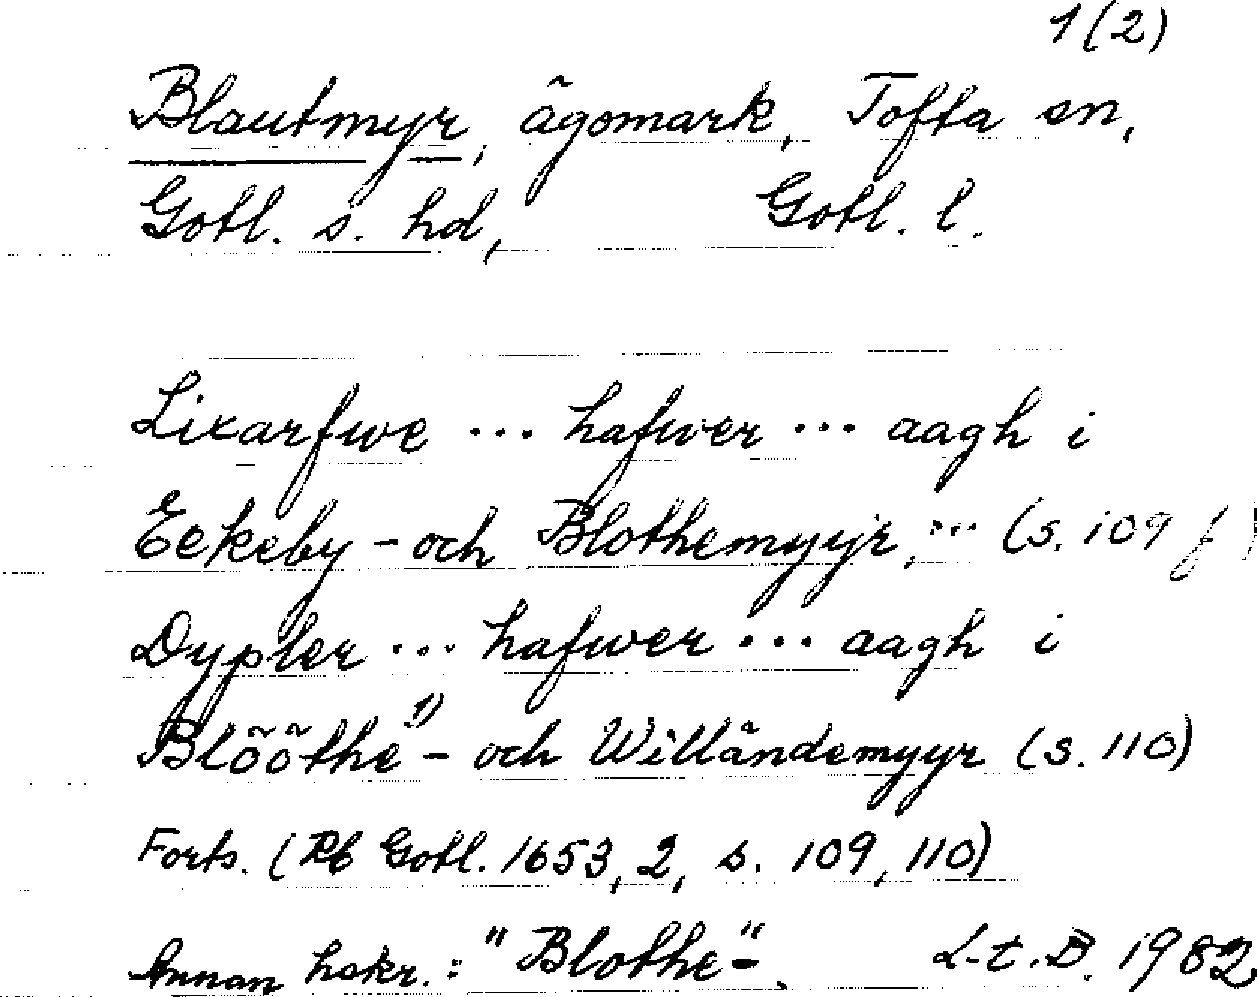 1(2)
Blautmyr, ägomark, Tofta sn,
Gotl. s. hd, Gotl. l.
Lixarfwe ... hafwer ... aagh i
Eekeby- och Blothemyyr, ... (s. 109 f)
Dypler ... hafwer ... aagh i
Blööthe¹⁾- och Willändemyyr (s. 110)
Forts. (Rb Gotl. 1653, 2, s. 109, 110)
Annan hskr.: "Blothe-". L-t.B. 1982